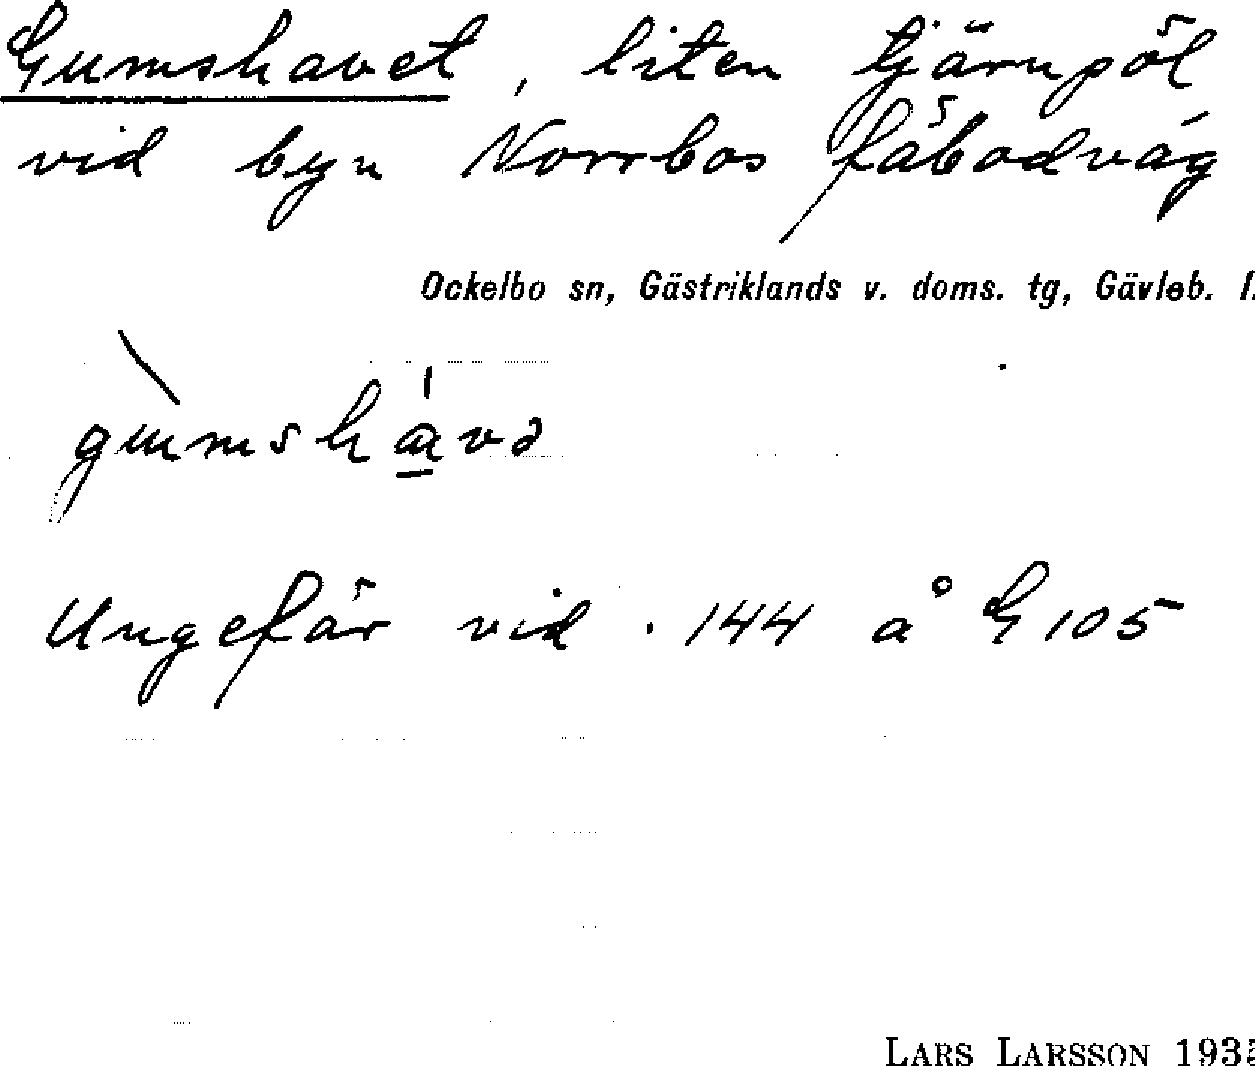 Gumshavet, liten tjärnpöl
vid byn Norrbos fäbodväg
Ockelbo sn, Gästriklands v. doms. tg, Gävleb. l.
gùmshávə
Ungefär vid . 144 å G 105
LARS LARSSON 1935